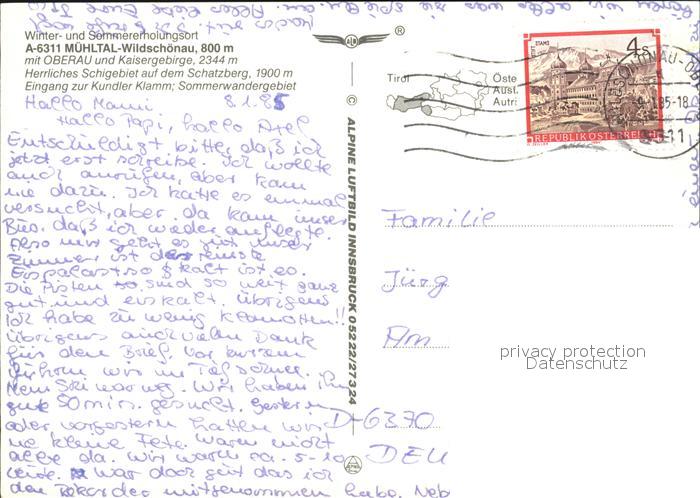 Winter- und Sommererholungsort
A-6311 MÜHLTAL-Wildschönau, 800 m
mit OBERAU und Kaisergebirge, 2344 m
Herrliches Schigebiet auf dem Schatzberg, 1900 m
Eingang zur Kundler Klamm; Sommerwandergebiet
Hallo Mami 8.1.85
Hallo Papi, hallo Axel
Entschuldigt bitte, daß ich
jetzt erst schreibe. Ich wollte
auch anrufen, aber kam
nie dazu. Ich hatte es einmal
versucht, aber da kam immer
daß ich wieder auflegte.
Also mir geht es gut unser
Zimmer ist der reinste
Eispalast so kalt ist es.
Die Pisten sind so weit ganz
gut und eiskalt. Übrigens
Ich habe zu wenig Klamotten!!
Übrigens auch vielen Dank
für den Brief. Vor kurzem
fuhren wir im
Mein Ski war weg. Wir haben ihn
gute 50 min. gesucht. Gestern
oder vorgestern hatten wir
ne kleine Fete. Waren nicht
alle da. Wir waren ca. 5-10
Leute. War doch gut das ich
den Rekorder mitgenommen habe. Neb
© ALPINE LUFTBILD INNSBRUCK 05222/27324
ALPINE
®
Tirol
Öste
Ausl.
Autri
STIFT STAMS
4 S
REPUBLIK ÖSTERREICH
85-18
6311
Familie
Jürg
Am
privacy protection
Datenschutz
D-6370
DEU